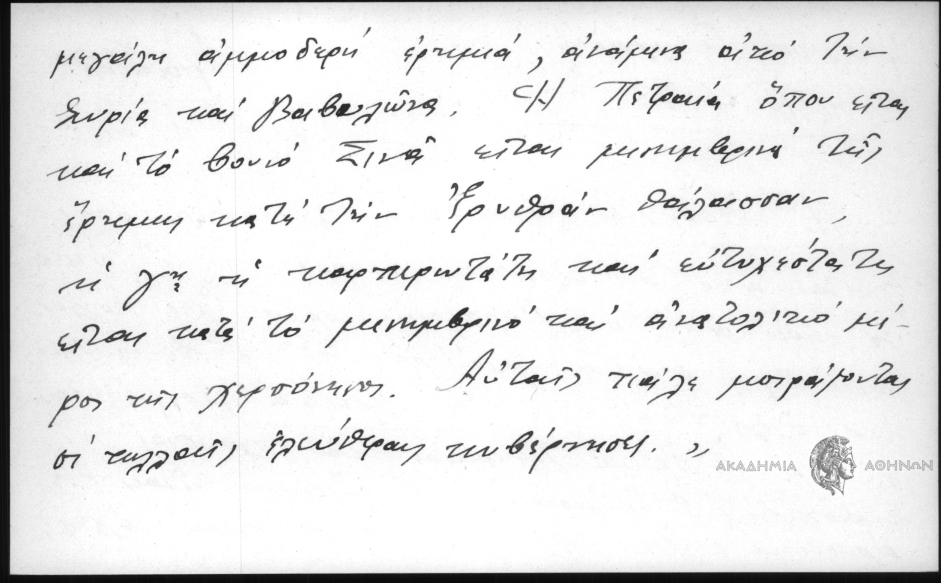 μεγάλη ἀμμοδερή ἐρημιά, ἀνάμεσα ἀπό τήν
Συρία καί Βαβυλῶνα. Ἡ Πετραία ὅπου εἶναι
καί τό βουνό Σινᾶ εἶναι μεσημβρινά τῆς
ἔρημης κατά τήν Ἐρυθράν θάλασσαν,
ἡ γῆ ἡ καρπερωτάτη καί εὐτυχεστάτη
εἶναι κατά τό μεσημβρινό καί ἀνατολικό μέ-
ρος τῆς χερσονήσου. Αὐταῖς πάλε μοιράζονται
σέ πολλαῖς ἐλεύθεραις κυβέρνησες. „
ΑΚΑΔΗΜΙΑ ΑΘΗΝΩΝ